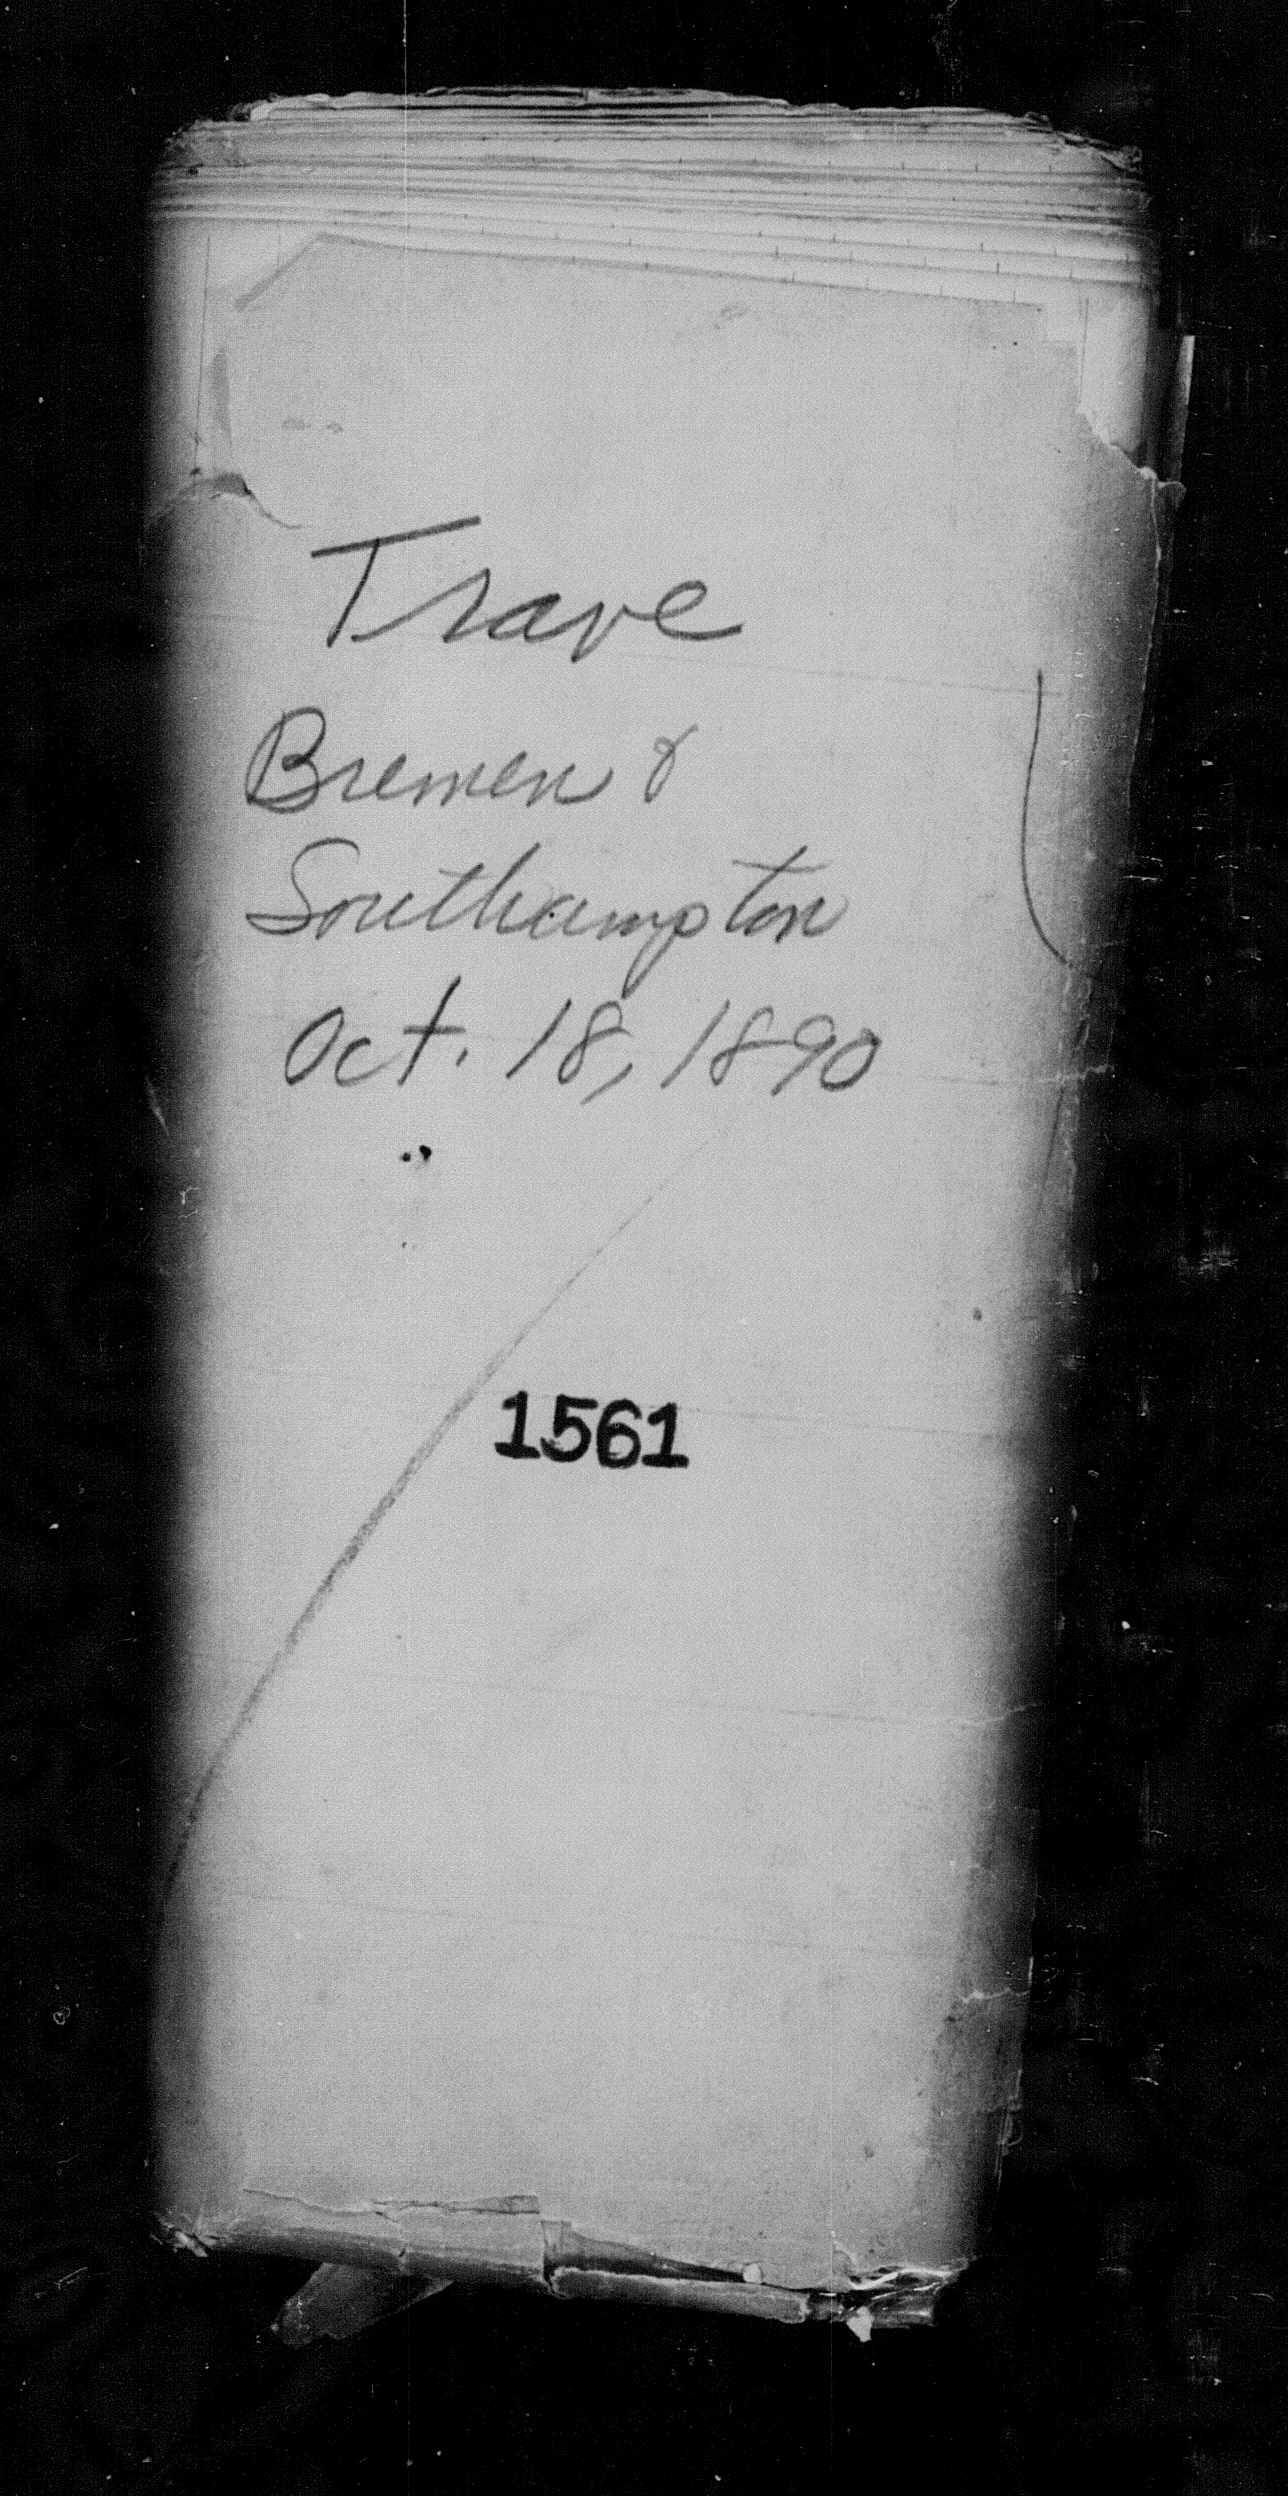 Trave
Bremen &
Southampton
Oct. 18, 1890
1561